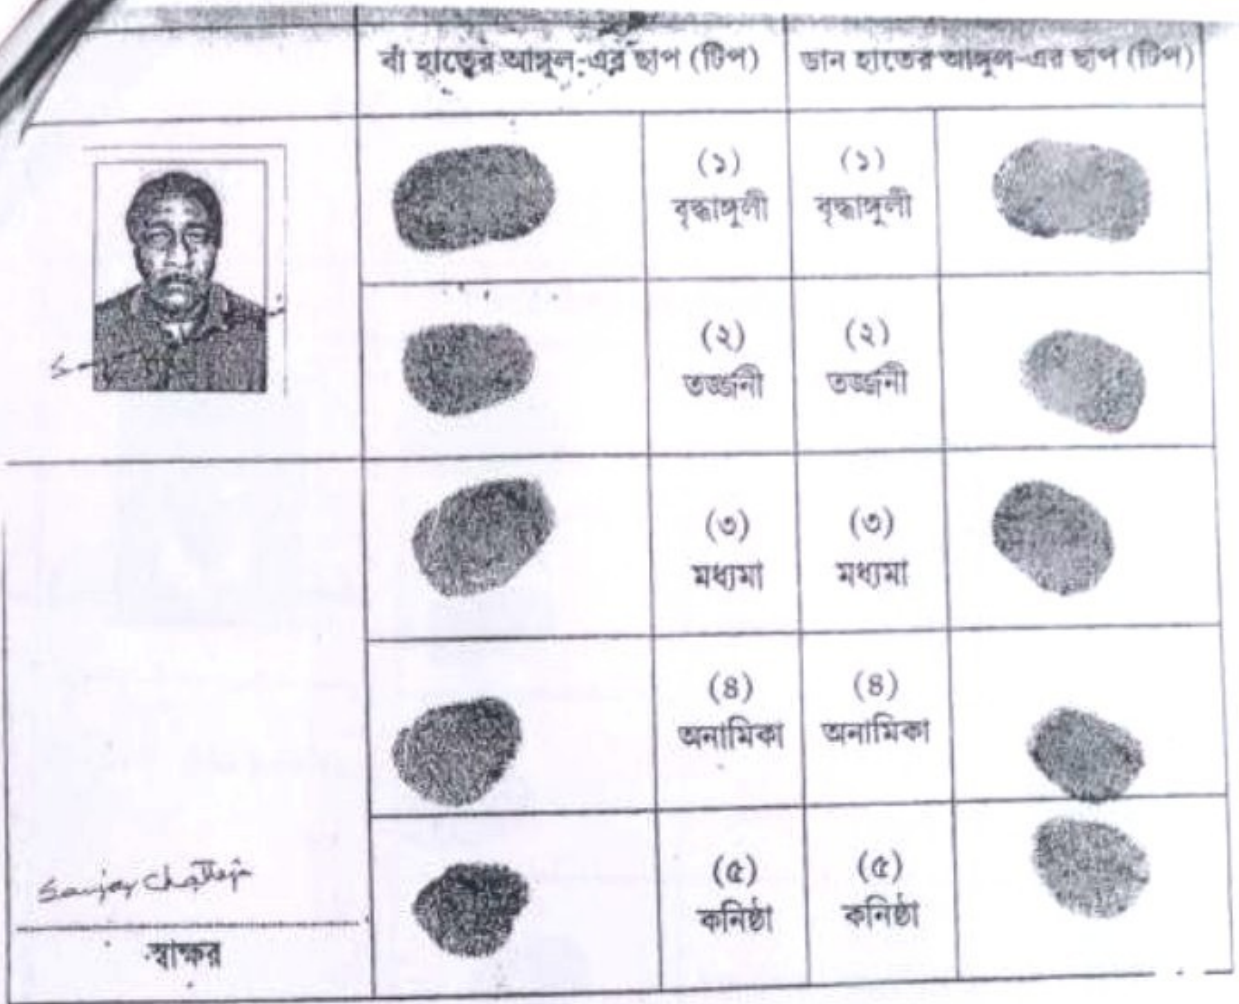 বাঁ হাতের আঙ্গুল-এর ছাপ (টিপ)
ডান হাতের আঙ্গুল-এর ছাপ (টিপ)
(১) (১)
বৃদ্ধাঙ্গুলী বৃদ্ধাঙ্গুলী
(২) (২)
তর্জ্জনী তর্জ্জনী
(৩) (৩)
মধ্যমা মধ্যমা
(৪) (৪)
অনামিকা অনামিকা
(৫) (৫)
কনিষ্ঠা কনিষ্ঠা
Sanjay Chatterje
স্বাক্ষর